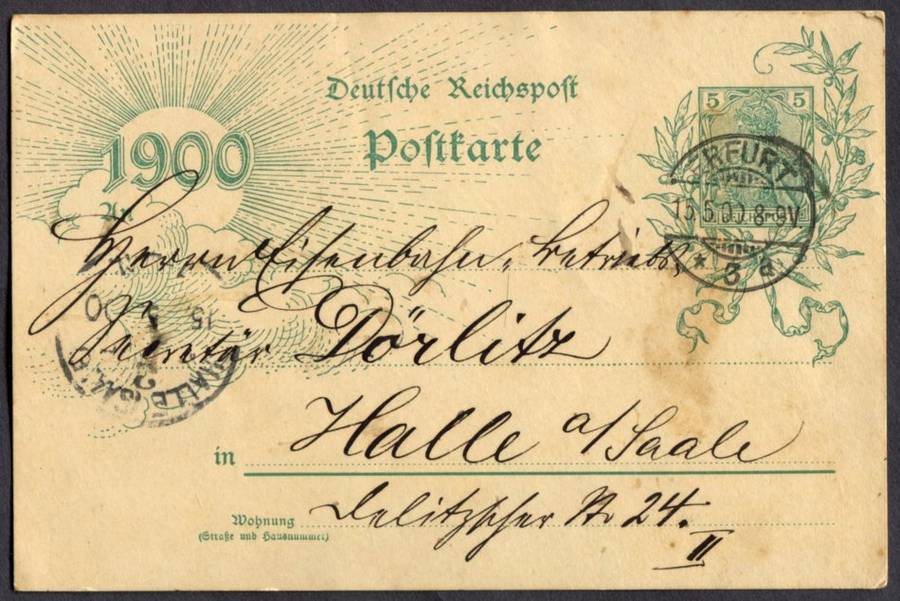 Deutsche Reichspost
Postkarte
1900
5 5
ERFURT
15.5.00.8-9V
* 3 d
An
Herrn Eisenbahn-Betriebs
Secretär Dörlitz
in Halle a/Saale
Wohnung Delitzscher Str 24.
(Straße und Hausnummer)
II
HALLE (SAALE)
15 5 00